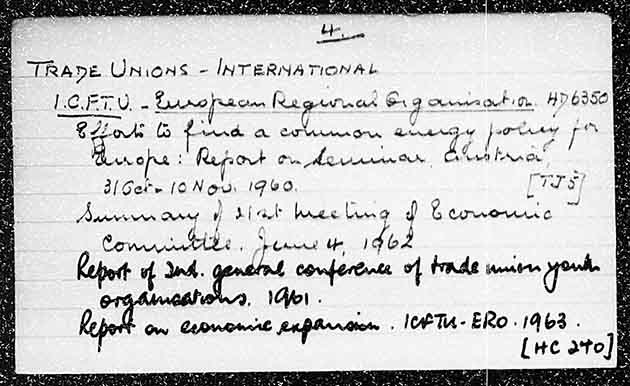 4.
TRADE UNIONS - INTERNATIONAL
I.C.F.T.U. - European Regional Organisation. HD6350
Efforts to find a common energy policy for
Europe: Report on Seminar, Austria,
31 Oct - 10 Nov. 1960.
[TJ5]
Summary of 21st meeting of Economic
Committee. June 4, 1962
Report of 2nd. general conference of trade union youth
organisations. 1961.
Report on economic expansion. ICFTU-ERO. 1963.
[HC 240]